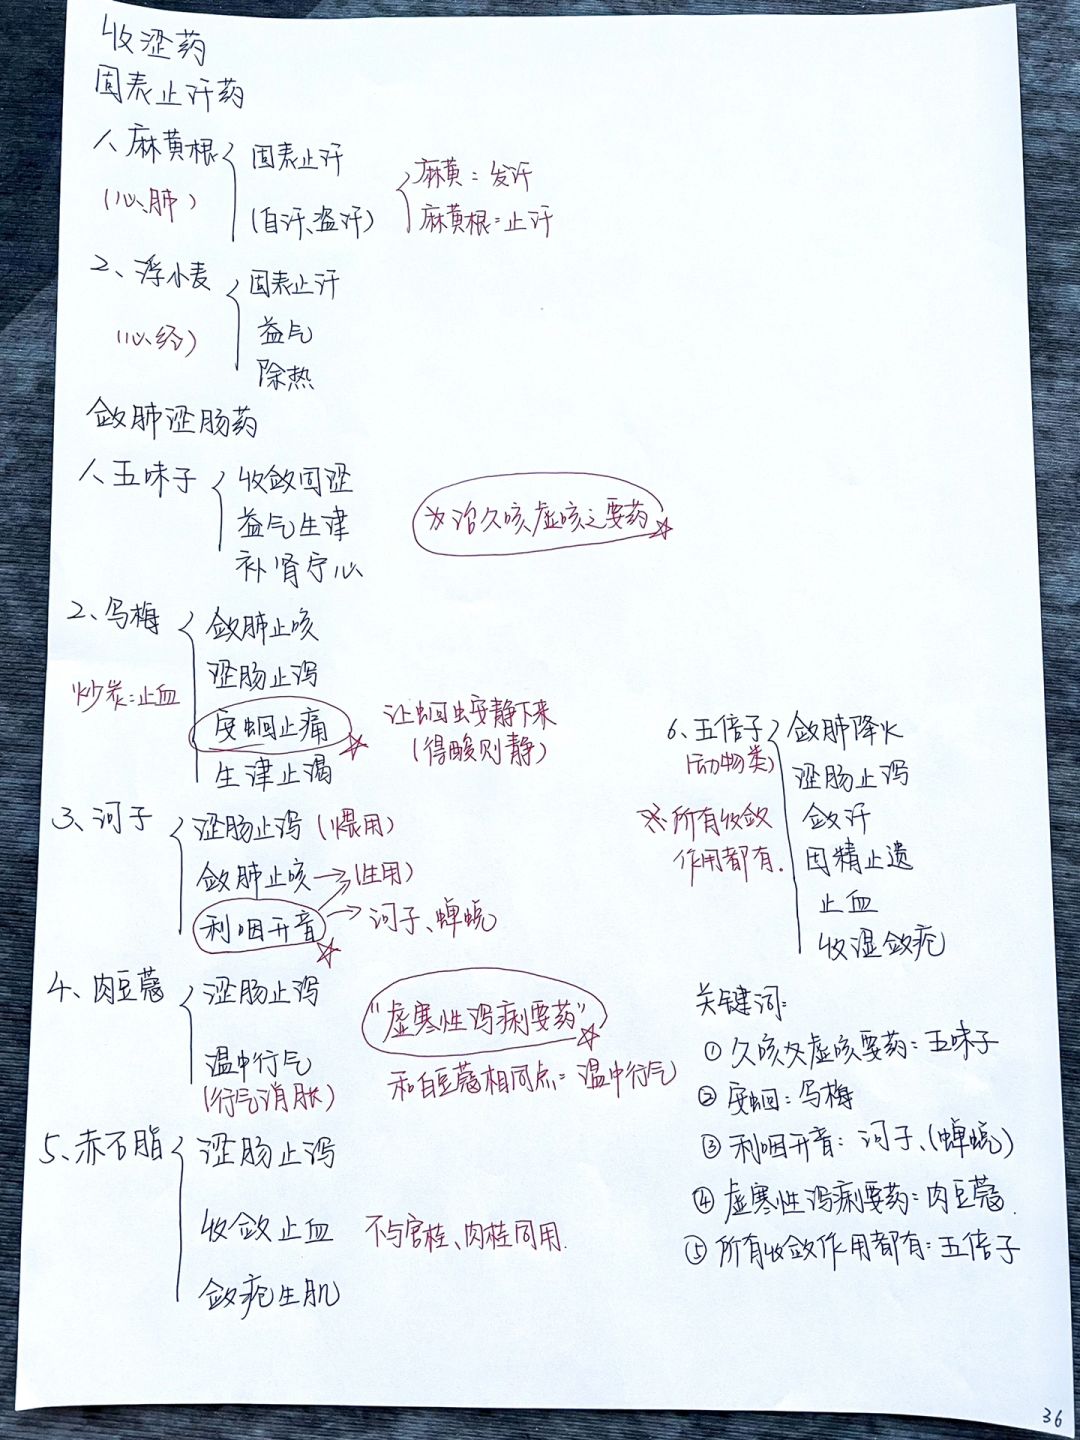 收涩药
固表止汗药
1、麻黄根 固表止汗
(心、肺) (自汗、盗汗)
麻黄：发汗
麻黄根：止汗
2、浮小麦 固表止汗
(心经) 益气
除热
敛肺涩肠药
1、五味子 收敛固涩
益气生津
补肾宁心
※治久咳虚咳之要药
2、乌梅 敛肺止咳
炒炭：止血 涩肠止泻
安蛔止痛
让蛔虫安静下来
(得酸则静)
生津止渴
3、诃子 涩肠止泻 (煨用)
敛肺止咳→(生用)
利咽开音→诃子、蝉蜕
4、肉豆蔻 涩肠止泻
温中行气
(行气消胀)
"虚寒性泻痢要药"
和白豆蔻相同点：温中行气
5、赤石脂 涩肠止泻
收敛止血 不与官桂、肉桂同用.
敛疮生肌
6、五倍子 敛肺降火
(动物类) 涩肠止泻
※所有收敛 敛汗
作用都有. 固精止遗
止血
收湿敛疮
关键词:
①久咳及虚咳要药：五味子
②安蛔：乌梅
③利咽开音：诃子、(蝉蜕)
④虚寒性泻痢要药：肉豆蔻.
⑤所有收敛作用都有：五倍子
36